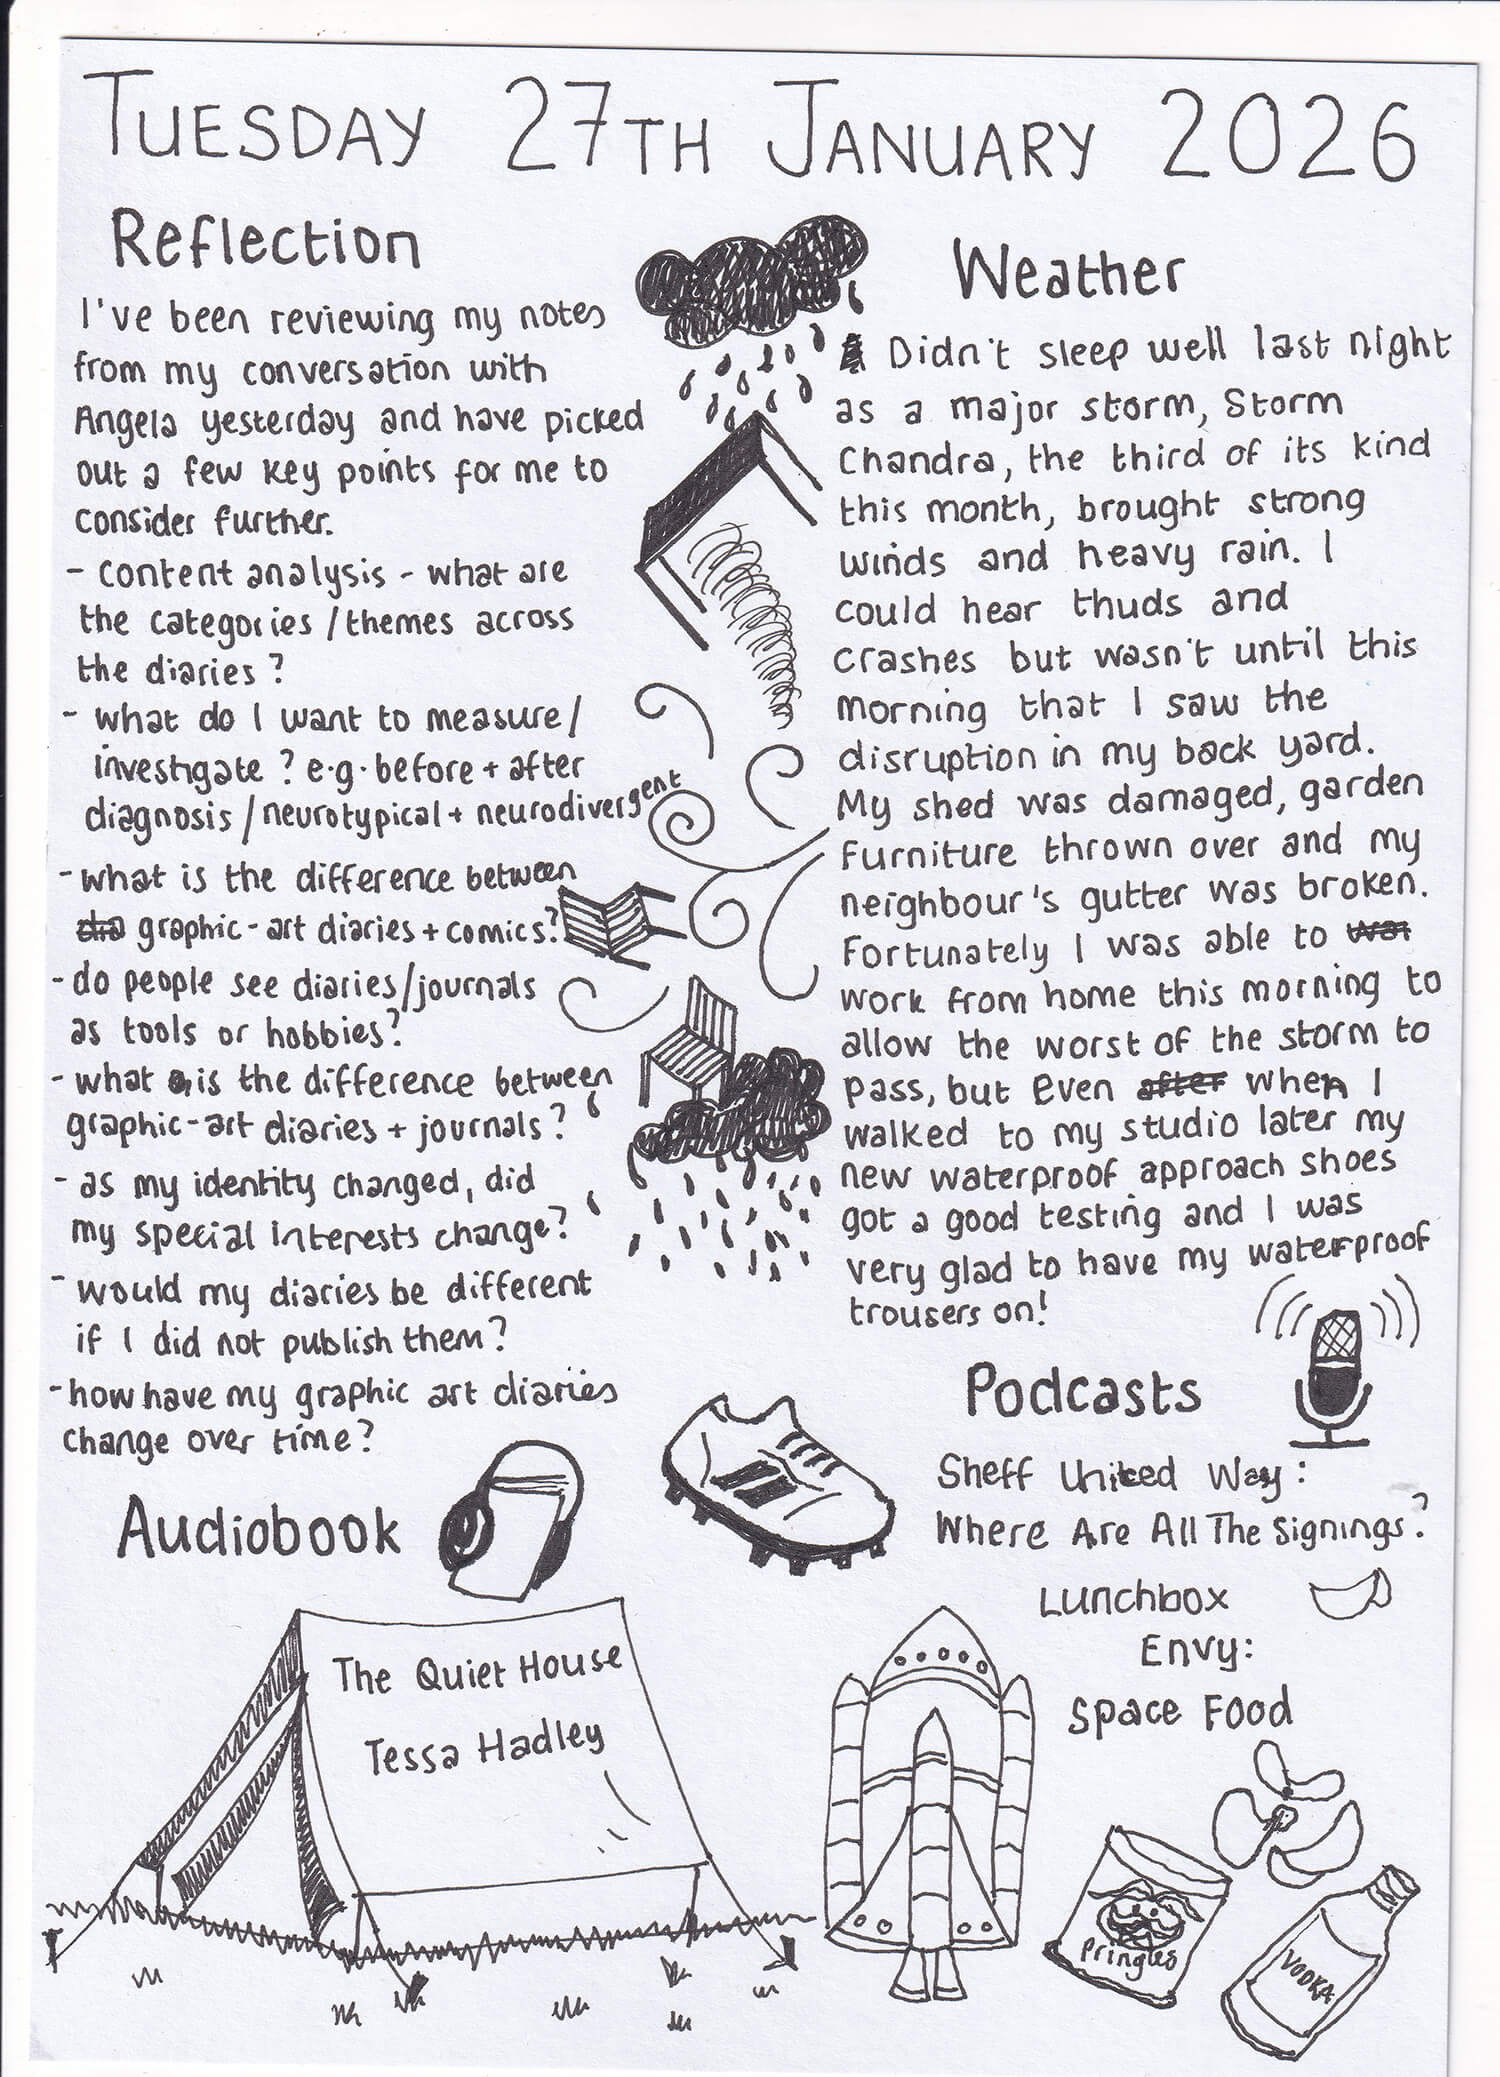 TUESDAY 27TH JANUARY 2026
Reflection
I've been reviewing my notes
from my conversation with
Angela yesterday and have picked
out a few key points for me to
consider further.
- content analysis - what are
the categories / themes across
the diaries?
- what do I want to measure/
investigate? e.g. before + after
diagnosis / neurotypical + neurodivergent
- what is the difference between
dia graphic-art diaries + comics?
- do people see diaries/journals
as tools or hobbies?
- what is the difference between
graphic-art diaries + journals?
- as my identity changed, did
my special interests change?
- would my diaries be different
if I did not publish them?
- how have my graphic art diaries
change over time?
Audiobook
The Quiet House
Tessa Hadley
Weather
Didn't sleep well last night
as a major storm, Storm
Chandra, the third of its kind
this month, brought strong
winds and heavy rain. I
could hear thuds and
crashes but wasn't until this
morning that I saw the
disruption in my back yard.
My shed was damaged, garden
furniture thrown over and my
neighbour's gutter was broken.
Fortunately I was able to wor
work from home this morning to
allow the worst of the storm to
pass, but even after when I
walked to my studio later my
new waterproof approach shoes
got a good testing and I was
very glad to have my waterproof
trousers on!
Podcasts
Sheff United Way:
Where Are All The Signings?
Lunchbox
Envy:
Space Food
Pringles
VODKA